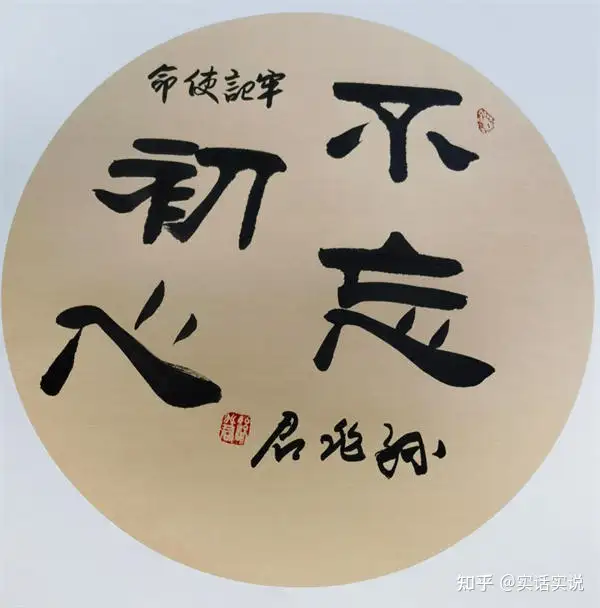 不忘
初心
牢記使命
孫兆君
知乎 @实话实说